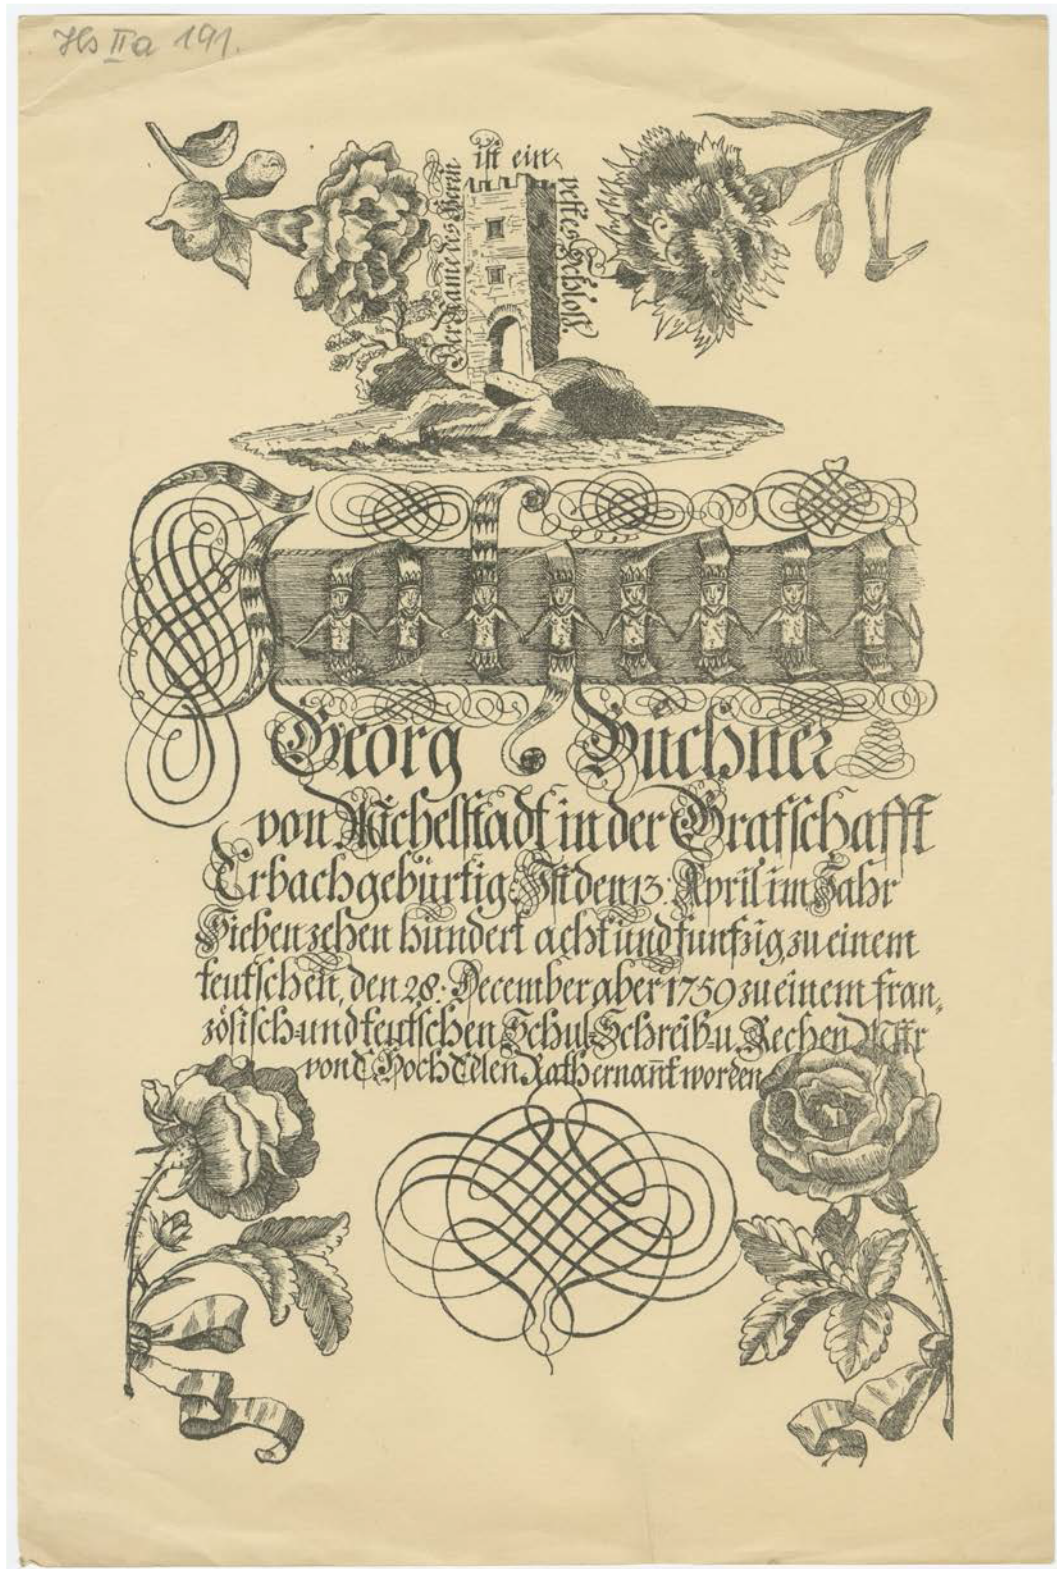 Hs IIa 191.
Der Name des Herrn
ist ein
vestes Schloß.
Georg Büchner
von Michelstadt in der Grafschafft
Erbach gebürtig. Ist den 13. April im Jahr
Sieben zehen hundert acht und funfzig, zu einem
teutschen, den 28. December aber 1759 zu einem fran,
zösisch= und teutschen Schul= Schreib= u. Rechen Mstr
von E Hoch Edlen Rath ernan̄t worden